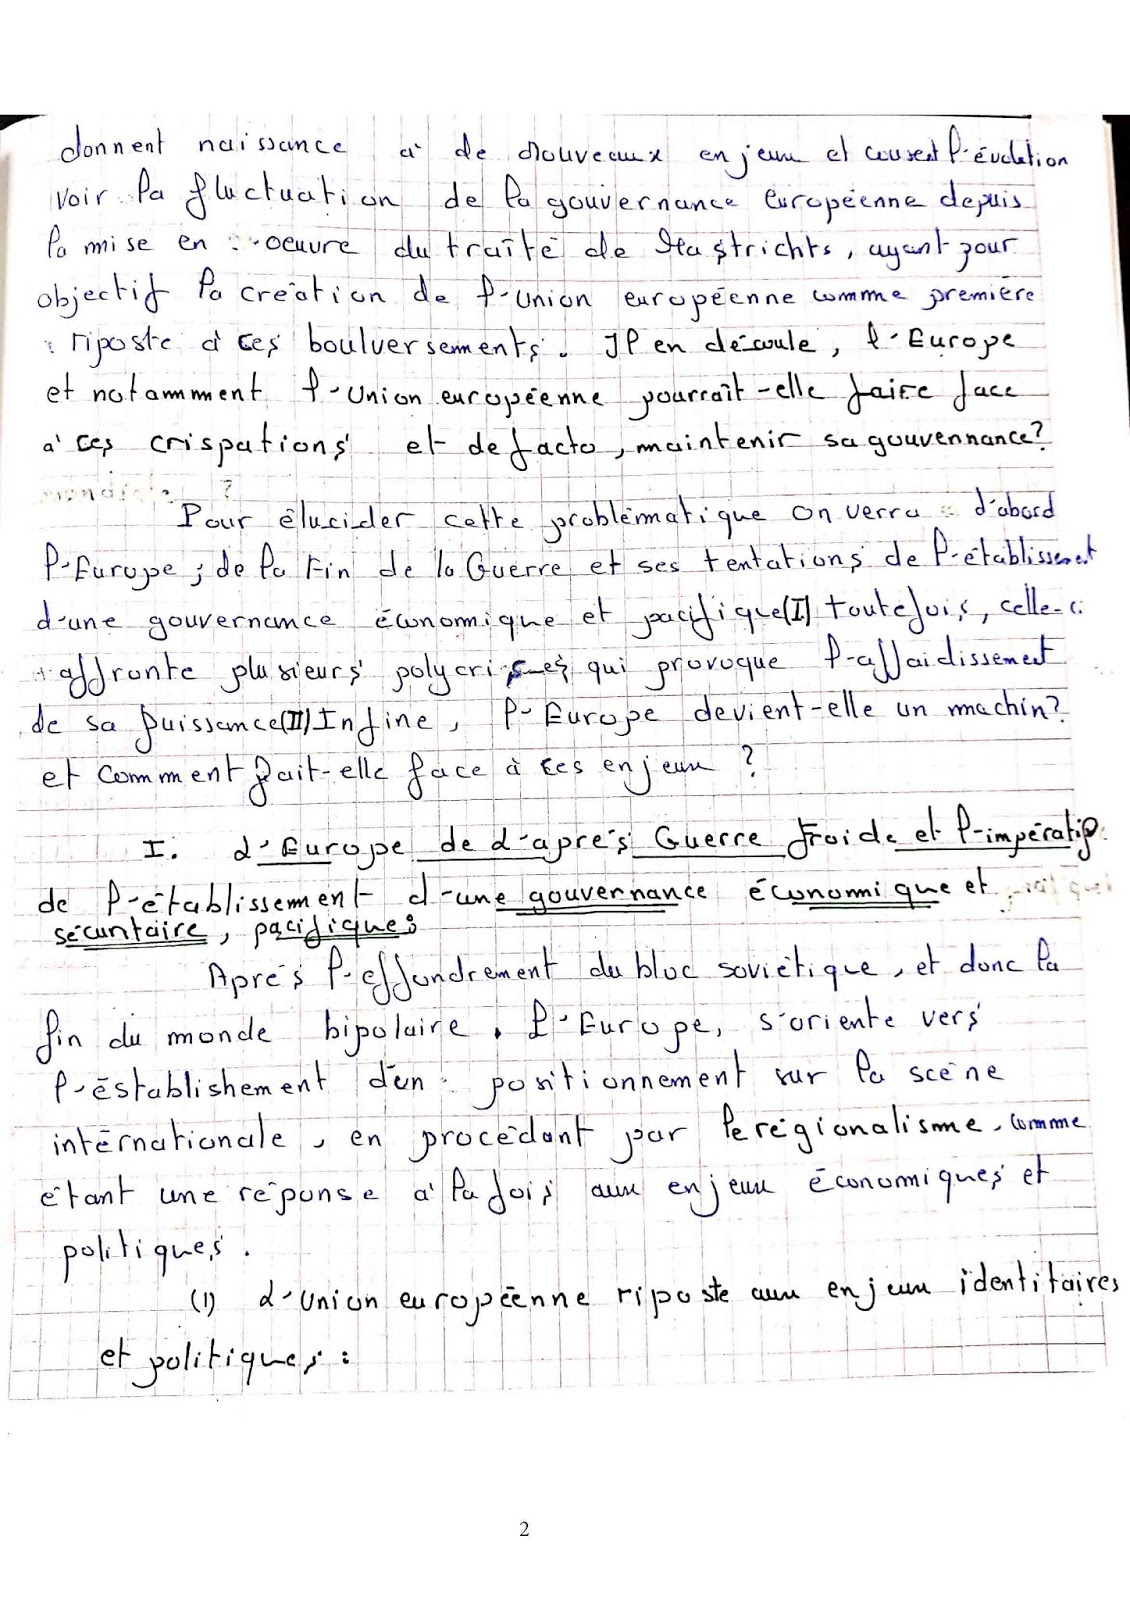 donnent naissance à de nouveaux enjeux et causent l'évolution
voir la fluctuation de la gouvernance européenne depuis
la mise en oeuvre du traité de Mastrichts, ayant pour
objectif la création de l'Union européenne comme première
riposte à ces boulversements. Il en découle, l'Europe
et notamment l'Union européenne pourrait-elle faire face
à ces crispations et de facto, maintenir sa gouvernance?
?
Pour élucider cette problématique on verra d'abord
l'Europe; de la Fin de la Guerre et ses tentations de l'établissement
d'une gouvernance économique et pacifique(I) toutefois, celle-ci
affronte plusieurs polycrises qui provoque l'affaidissement
de sa puissance(II) Infine, l'Europe devient-elle un machin?
et comment fait-elle face à ces enjeux ?
I. L'Europe de d'après Guerre froide et l'impératif
de l'établissement d'une gouvernance économique et
sécuritaire, pacifique:
Après l'effondrement du bloc soviétique, et donc la
fin du monde bipolaire. L'Europe, s'oriente vers
l'établishement d'en positionnement sur la scène
internationale, en procédant par le régionalisme. comme
étant une réponse à la fois aux enjeux économiques et
politiques.
(1) L'Union européenne riposte aux enjeux identitaires
et politiques:
2